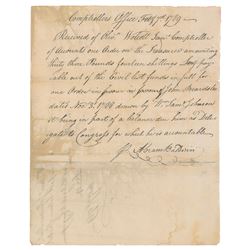 Comptrollers Office Feby 7th 1789
Received of Oliv. Wolcott Junr Comptroller
of Accounts one Order on the Treasurer amounting
thirty three Pounds fourteen shillings Lmy pay
able out of the Civil list funds in full for
one Order in favour in favour of John Beardslee
dated Nov. 3. 1788 drawn by Wm Saml Johnson
it being in part of a balance due him as Dele
gate to Congress for which he is accountable
Abram Baldwin